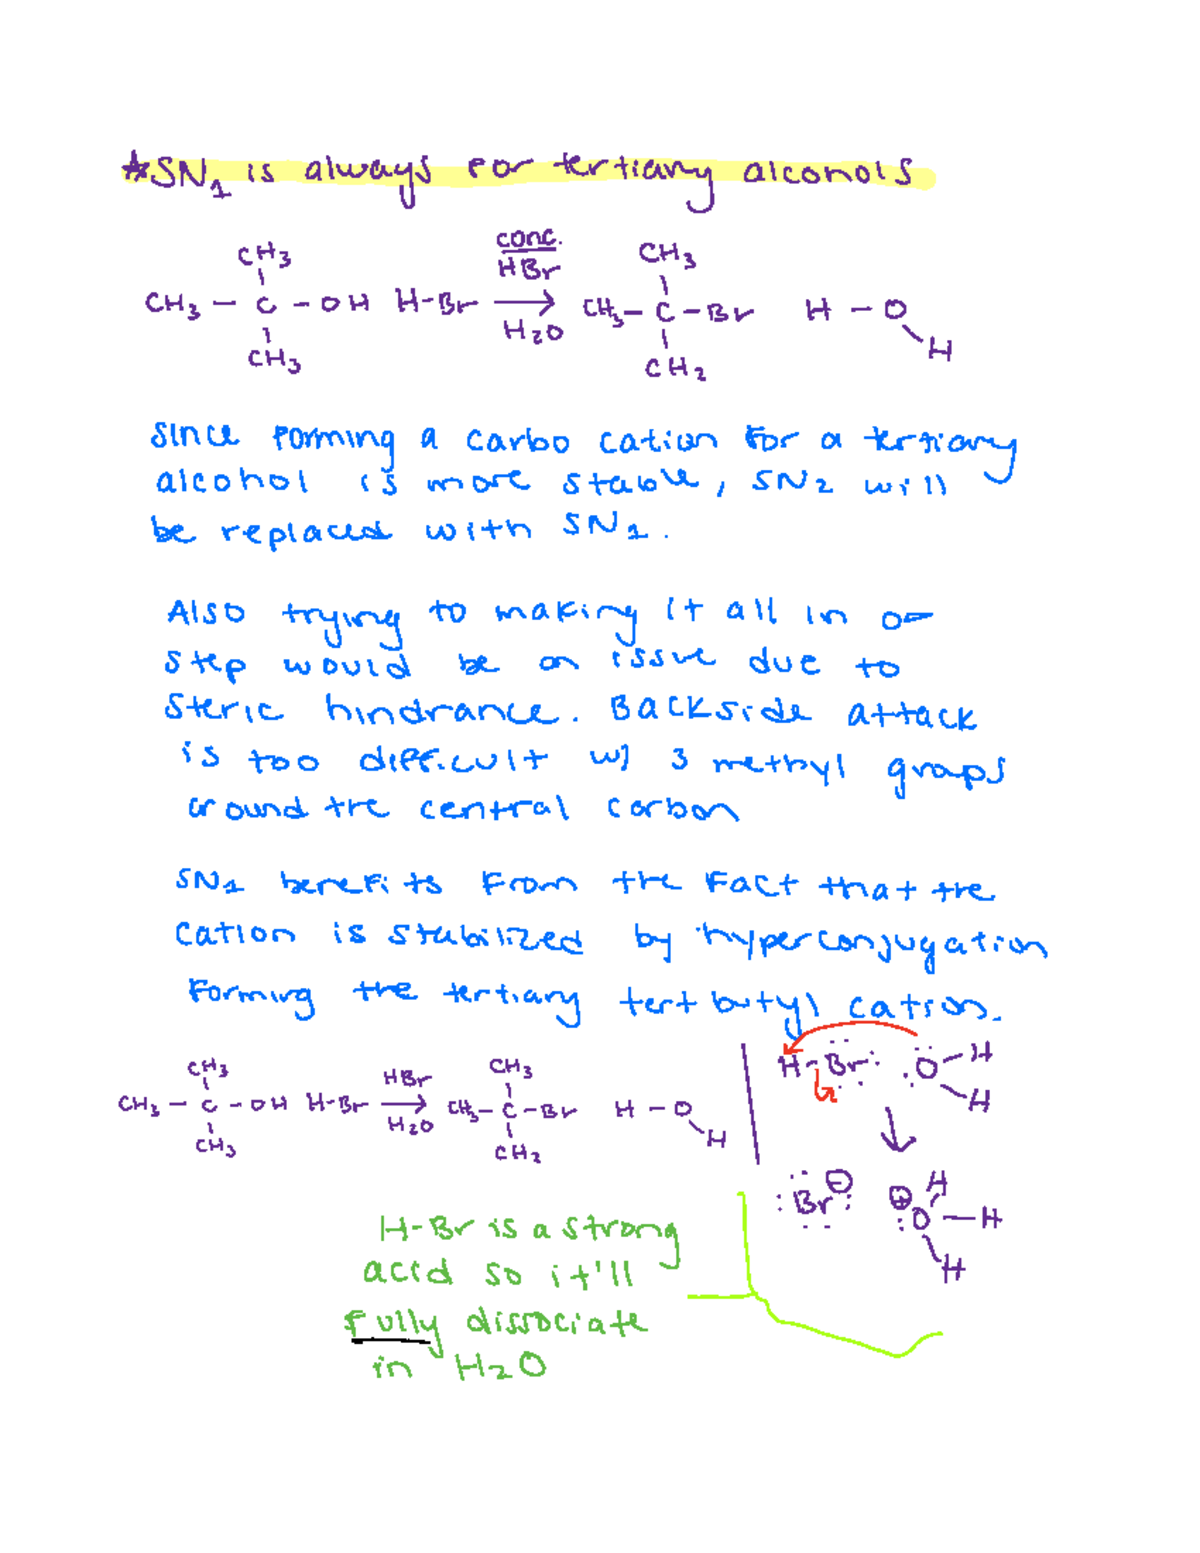 *SN1 is always for tertiary alcohols
CH3 conc. CH3
HBr
CH3 - C - OH H-Br → CH3 - C - Br H - O
H2O H
CH3 CH2
Since forming a carbo cation for a tertiary
alcohol is more stable, SN2 will
be replaced with SN1.
Also trying to making it all in
step would be an issue due to
steric hindrance. Backside attack
is too difficult w/ 3 methyl groups
around the central carbon
SN1 benefits from the fact that the
cation is stabilized by hyperconjugation
forming the tertiary tert butyl cation.
CH3 HBr CH3 H-Br: :O-H
CH3 - C - OH H-Br → CH3 - C - Br H - O H
H2O H
CH3 CH2
:Br: ⊖ ⊕ H
:O - H
H
H-Br is a strong
acid so it'll
fully dissociate
in H2O